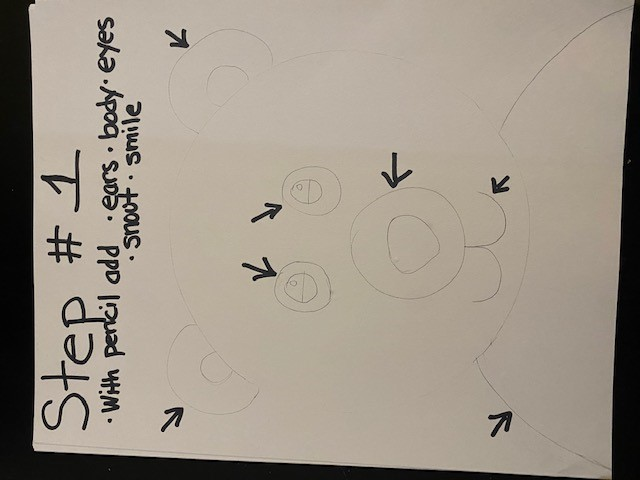 Step # 1
• With pencil add • ears • body • eyes
• snout • smile